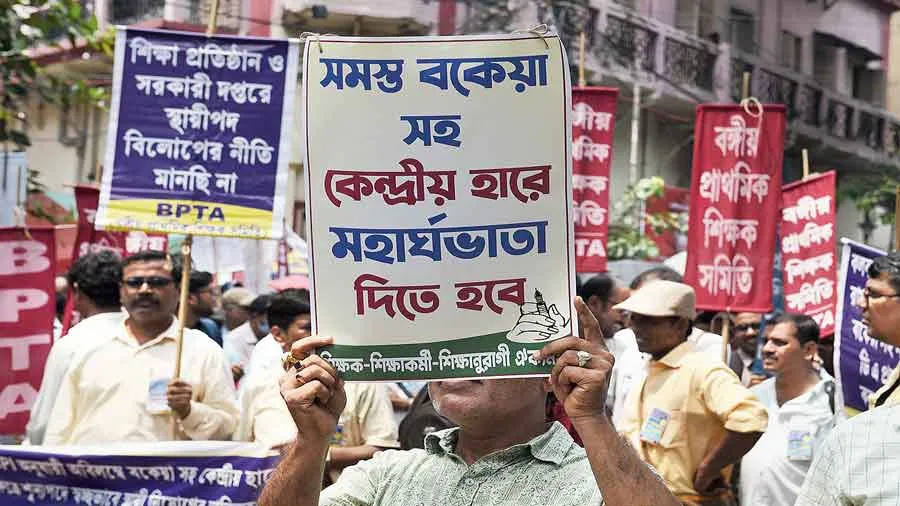 শিক্ষা প্রতিষ্ঠান ও
সরকারী দপ্তরে
স্থায়ীপদ
বিলোপের নীতি
মানছি না
BPTA
সমস্ত বকেয়া
সহ
কেন্দ্রীয় হারে
মহার্ঘভাতা
দিতে হবে
শিক্ষক-শিক্ষাকর্মী-শিক্ষানুরাগী
বঙ্গীয়
প্রাথমিক
শিক্ষক
সমিতি
বঙ্গীয়
প্রাথমিক
শিক্ষক
সমিতি
BPTA
BPTA
বকেয়া সহ কেন্দ্রীয়